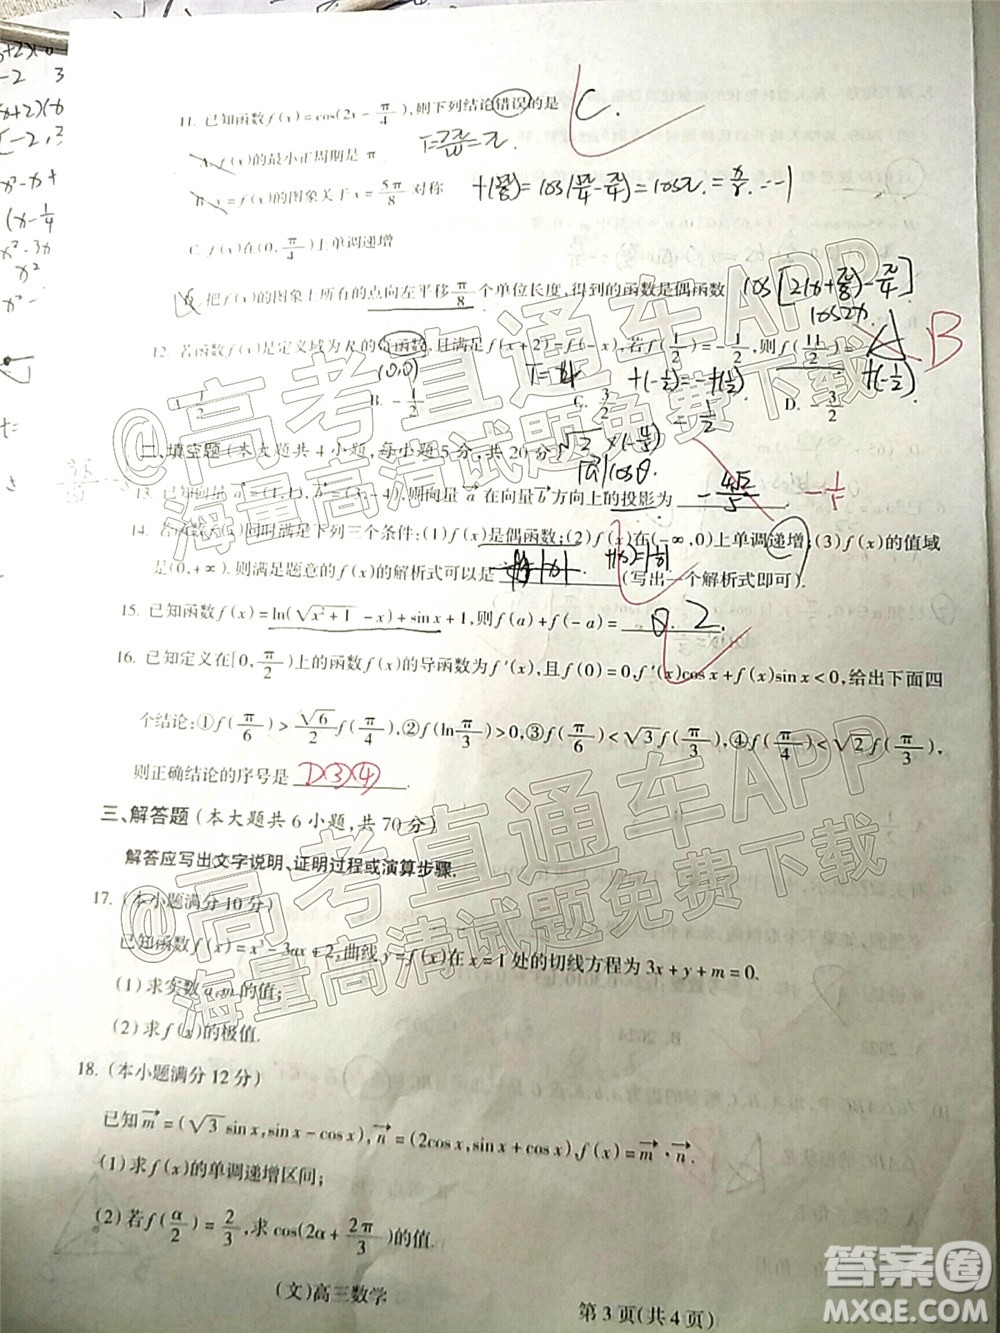 11. 已知函数f(x)=cos(2x-π/4),则下列结论错误的是
C.
A. f(x)的最小正周期是π
T=2π/|ω|=π.
B. x)的图象关于x=5π/8 对称
C. f(x)在(0,π/4)上单调递增
D. 把f(x)的图象上所有的点向左平移π/8个单位长度,得到的函数是偶函数
cos[2(x+π/8)-π/4]
cos2x.
12. 若函数f(x)是定义域为R的奇函数,且满足f(x+2)=f(-x),若f(1/2)=-1/2,则f(11/2)=
B
(0,0)
T=4
f(-1/2)=-f(1/2)
=1/2
f(-1/2)
A. 1/2 B. -1/2 C. 3/2 D. -3/2
二、填空题(本大题共4小题,每小题5分,共20分)
|a|cosθ
13. 已知向量a=(1,1),b=(3,-4),则向量a在向量b方向上的投影为
-4√2/5
-1/5
14. 若函数f(x)同时满足下列三个条件:(1)f(x)是偶函数;(2)f(x)在(-∞,0)上单调递增;(3)f(x)的值域
是(0,+∞).则满足题意的f(x)的解析式可以是 f(x)=|1/x| (写出一个解析式即可).
15. 已知函数f(x)=ln(√(x²+1)-x)+sinx+1,则f(a)+f(-a)= 2.
16. 已知定义在[0,π/2)上的函数f(x)的导函数为f'(x),且f(0)=0,f'(x)cosx+f(x)sinx<0,给出下面四
个结论:①f(π/6)>√6/2 f(π/4),②f(lnπ/3)>0,③f(π/6)<√3 f(π/3),④f(π/4)<√2 f(π/3),
则正确结论的序号是 ③④
三、解答题(本大题共6小题,共70分)
解答应写出文字说明、证明过程或演算步骤.
17. (本小题满分10分)
已知函数f(x)=x³-3ax+2,曲线y=f(x)在x=1处的切线方程为3x+y+m=0.
(1)求实数a,m的值;
(2)求f(x)的极值.
18. (本小题满分12分)
已知m=(√3sinx,sinx-cosx),n=(2cosx,sinx+cosx),f(x)=m·n.
(1)求f(x)的单调递增区间;
(2)若f(α/2)=2/3,求cos(2α+2π/3)的值.
(文)高三数学 第3页(共4页)
@高考直通车APP
海量高清试题免费下载
@高考直通车APP
海量高清试题免费下载
答案圈
MXQE.COM